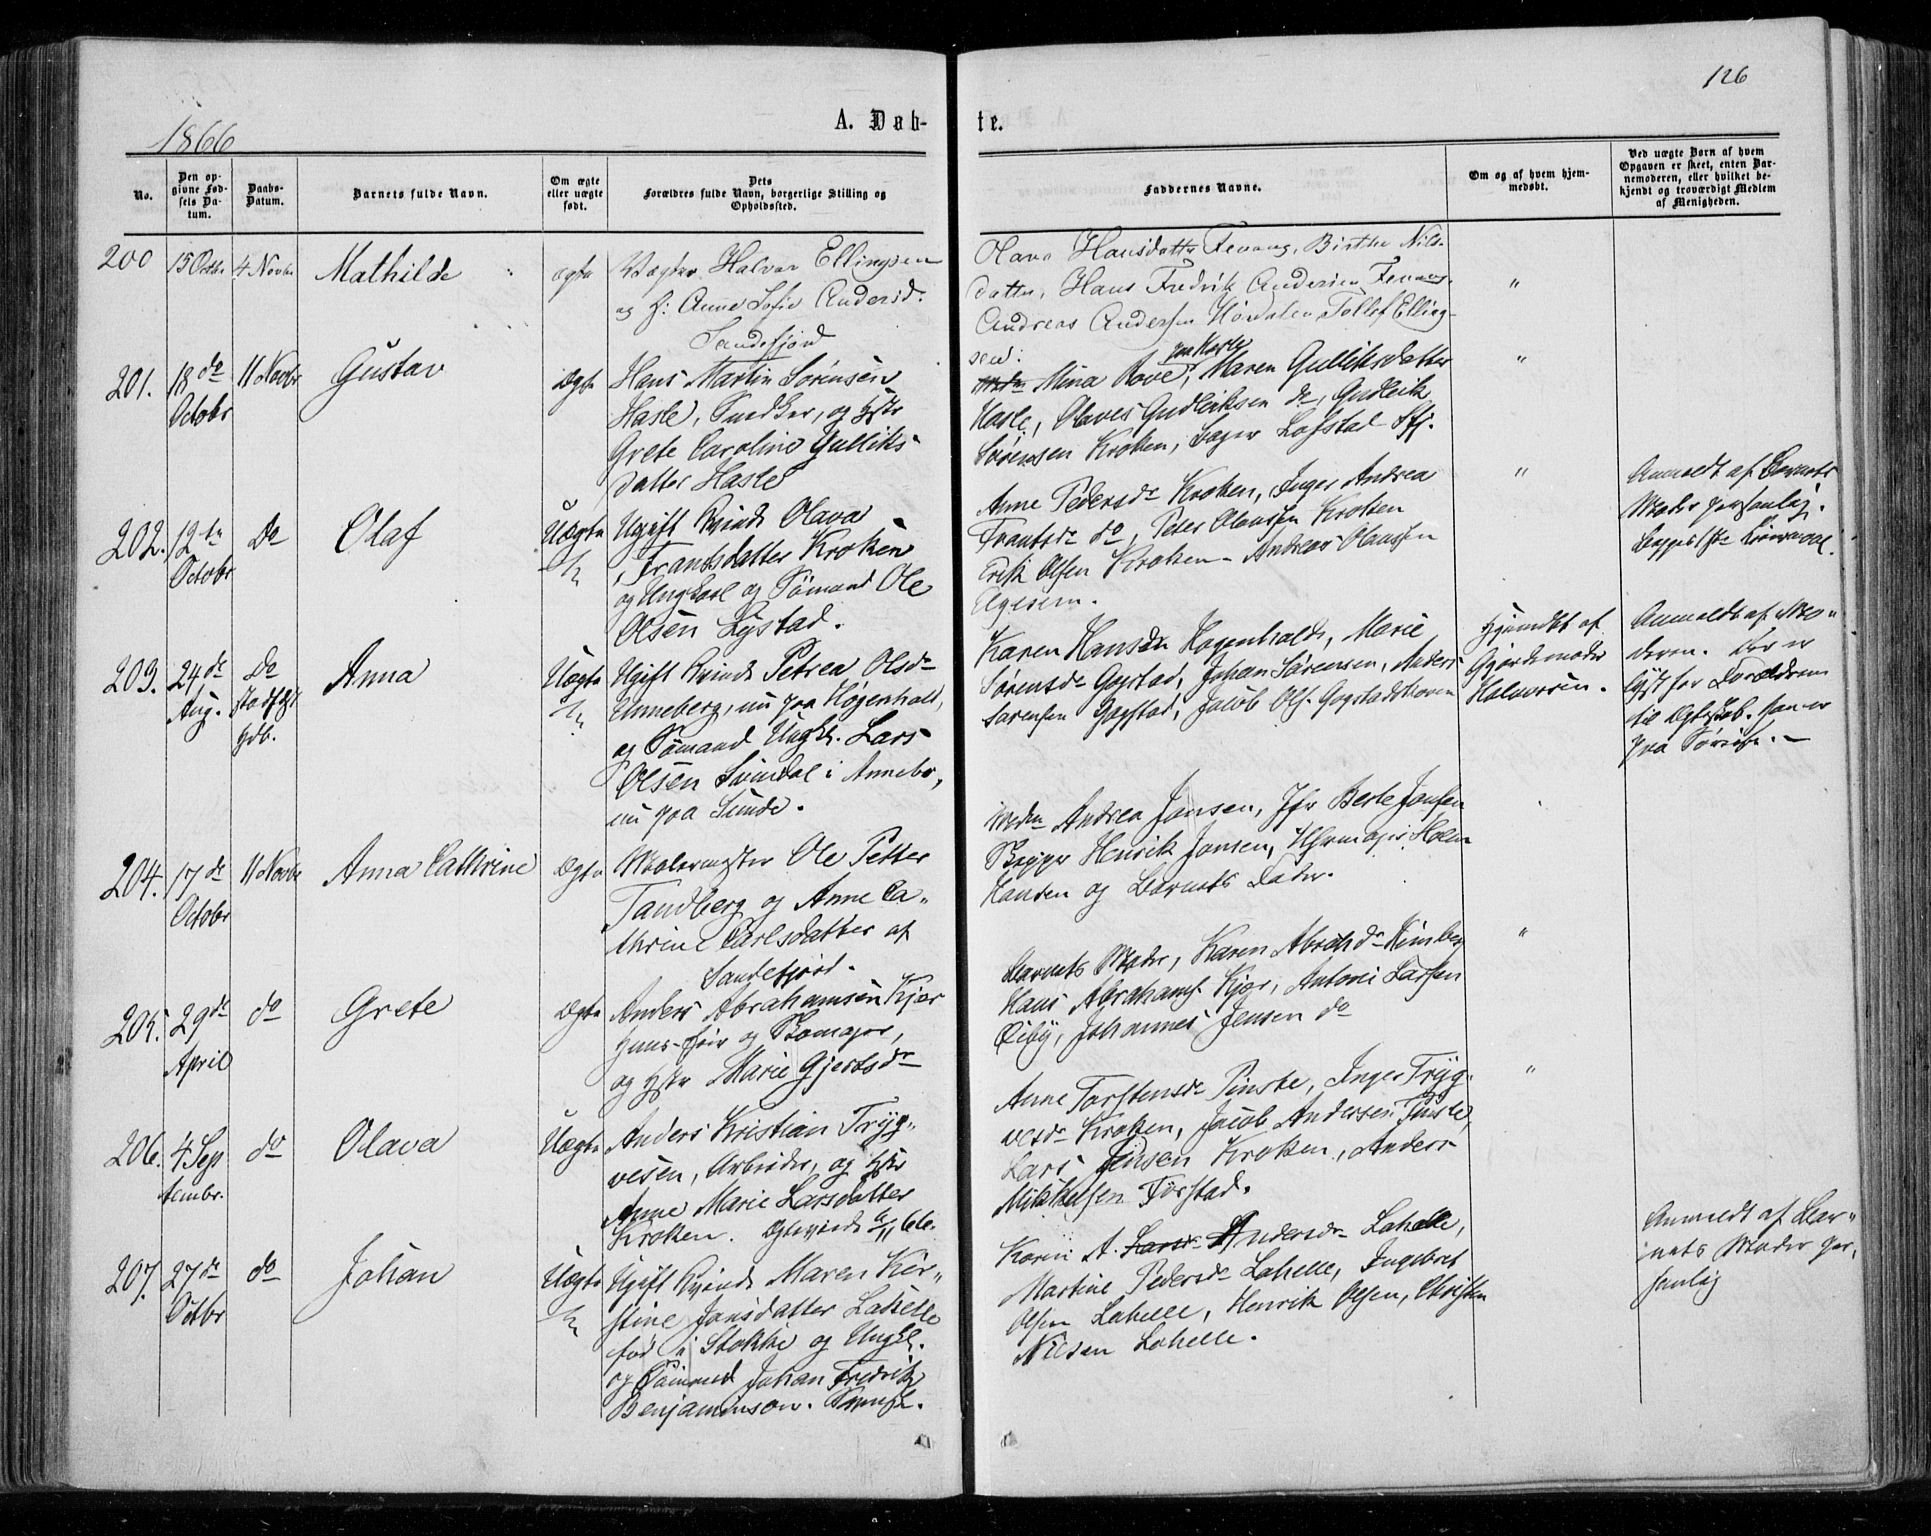 126
1866
A. Døb-
te.
No.
Den op-
givne Fød-
sels Da-
tum.
Daabs-
Datum.
Barnets fulde Navn.
Om ægte
eller uægte
født.
Dets
Forældres fulde Navn, borgerlige Stilling og
Opholdssted.
Faddernes Navne.
Om og af hvem hjem-
medøbt.
Ved uægte Børn af hvem
Opgaven er skeet, enten Bar-
nemoderen, eller hvilket be-
kjendt og troværdigt Medlem
af Menigheden.
200
15 Octbr.
4 Novbr
Mathilde
ægte
Halvor Ellingsen
og H: Anne Sofie Andersd.
Sandefjord
Olava Hansdatter Fevang, Birthe Nils-
datter, Hans Fredrik Andersen Fevang,
Andreas Andersen Tollef Elling-
sen.
"
201.
18de
Octobr
11 Novbr
Gustav
Ægte
Hans Martin Sörensen
Hasle, Snedker, og Hstr
Grete Caroline Gulliks-
datter Hasle
Mina Hove, paa Hasle, Maren Gulliksdatter
Hasle, Olaves Gudleiksen do, Gudleik
Sörensen Kroken, Lofstad Sfj.
"
202.
12te
Octobr
Do
Olaf
Uægte
1/1
Ugift Kvinde Olava
Frantsdatter Kroken
og Ungkarl og Sömand Ole
Olsen Lystad.
Anne Pedersdr Kroken, Inger Andrea
Frantsdr do, Peter Olaussen Kroken
Erik Olsen Kroken - Andreas Olaussen
"
Anmeldt af Barnets
Moder personlig.
203.
24de
Aug.
Do
Stadf. af
Hdb.
Anna
Uægte
Ugift Kvinde Petrea Olsdr
Enneberg, nu paa Högenhald,
og Sömand Ungkl. Lars
Olsen i Annebo,
nu paa Sunde.
Karen Hansdr Hogenhald, Marie
Sörensdr Gogstad, Johan Sörensen, Anders
Sörensen Gogstad, Jacob Ols. Gogstadskoven
Hjemdöbt af
Gjordemoder
Halvorsen.
Anmeldt af Mo-
deren. Der er
lyst for Forældrene
til Ægteskab. Han er
paa
204.
17de
Octobr
11 Novbr
Anna Cathrine
Ægte
Malermester Ole Petter
Tandberg og Anne Ca-
thrine Carlsdatter af
Sandefjord.
Andrea Jansen, Jfr Berte Jansen
Henrik Jansen, Holm
Hansen og Barnets Fader.
205.
29de
April
do
Grete
Ægte
Anders Abrahamsen Kjær
Huus-Eier og Skomager,
og Hstr Marie Gjertsdr
Barnets Moder, Karen Abrahdr
Hans Abrahams. Kjær, Antoni Larsen
Johannes Jensen do
"
206.
4 Sep
tembr.
do
Olava
Uægte
Anders Kristian Tryg-
vesen, Arbeider, og Hstr
Anne Marie Larsdatter
Kroken.
Anne Torstensdr Pinsle, Inger Tryg-
vesdr Kroken, Jacob Andersen Pinsle,
Lars Jensen Kroken, Anders
Mikkelsen Fürstad.
"
207.
27de
Octbr
do
Johan
Uægte
1/1
Ugift Kvinde Maren Kir-
stine Jansdatter Lahelle
föd i Stokke og Ungkl.
og Sömand Johan Fredrik
Benjaminson.
Karin A. Andersdr Lahelle,
Martine Pedersdr Lahelle, Ingebret
Olsen Lahelle, Henrik Olsen, Christen
Nilsen Lahelle.
Anmeldt af Bar-
nets Moder per-
sonlig